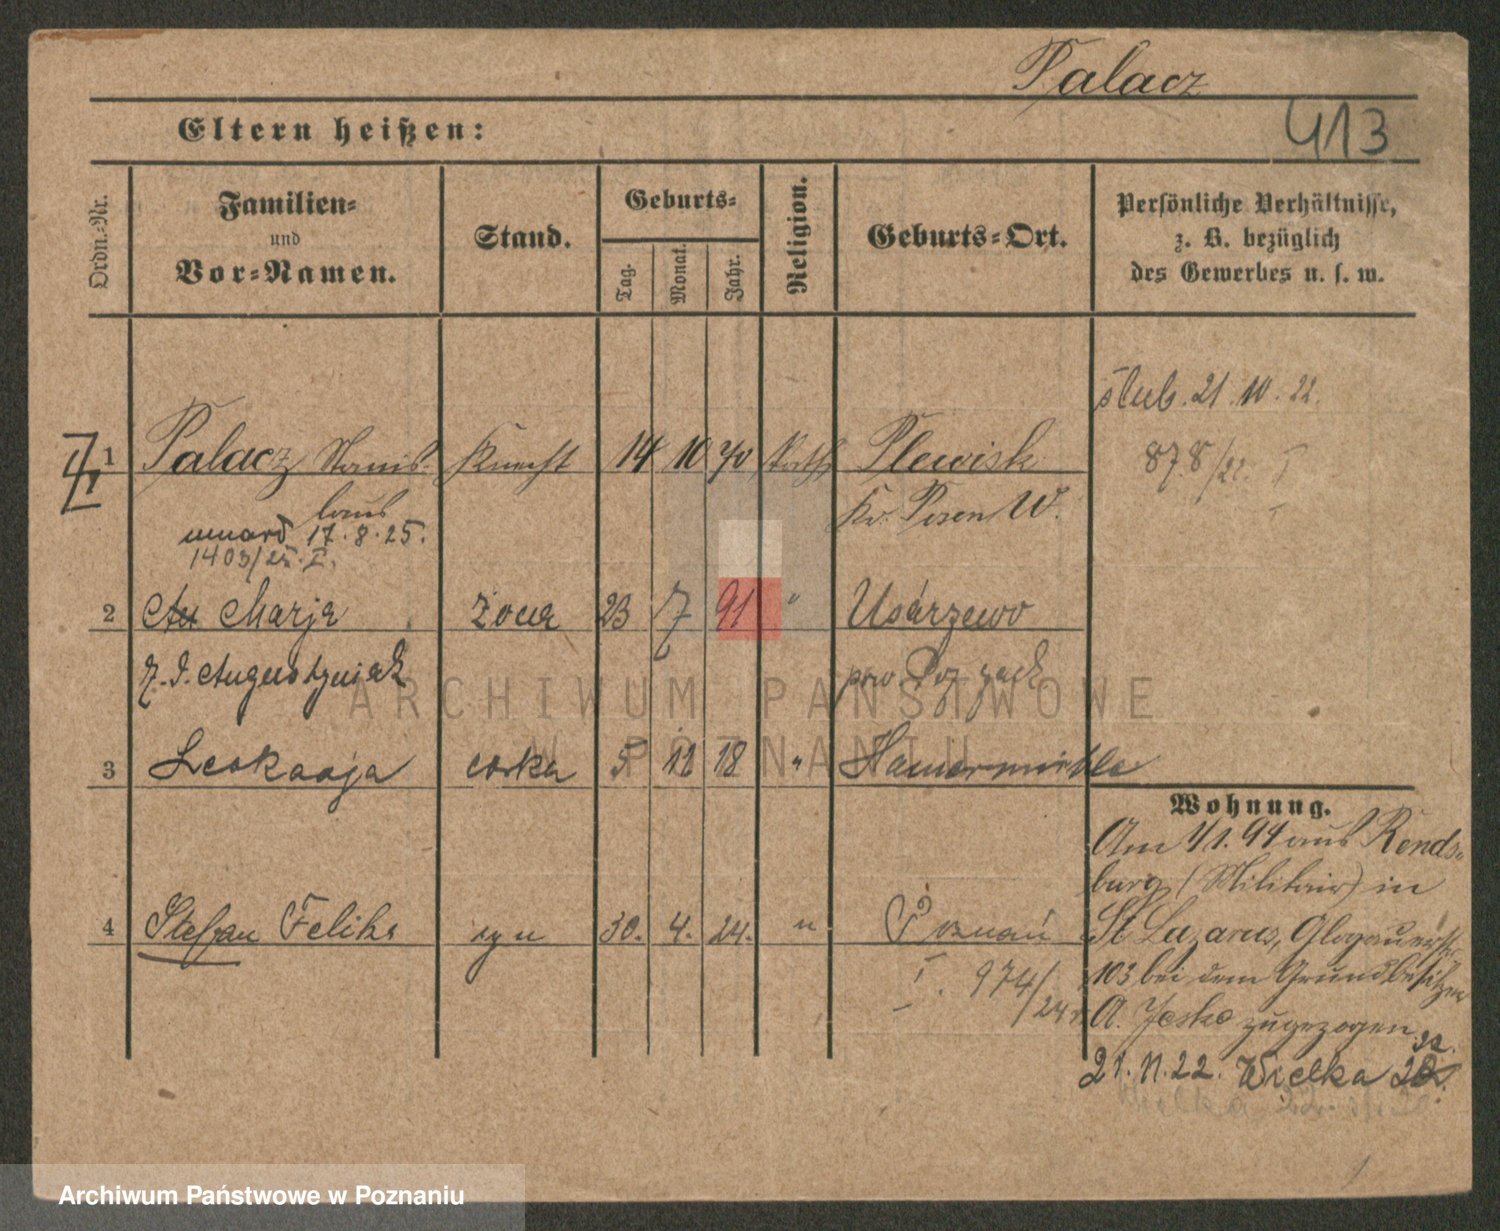 Palacz
413
Eltern heißen:
Ordn.-Nr.
Familien-
und
Vor-Namen.
Stand.
Geburts-
Tag.
Monat.
Jahr.
Religion.
Geburts-Ort.
Persönliche Verhältnisse,
z. B. bezüglich
des Gewerbes u. s. w.
ślub. 21.10.22.
878/22. I
1 Palacz Stanis- Knecht 14 10 70 kath Plewisk
laus Kr. Posen W.
umarł 17.8.25.
1403/25.I.
2 Marja żona 23 7 91 " Usarzewo
z.d. Augustyniak pow. Poz
ARCHIWUM PAŃSTWOWE
W POZNANIU
3 Leokadja córka 5 11 18 " Hamermühle
Wohnung.
Am 4/1.94 aus Rends-
burg (Militair) in
4 Stefan Feliks syn 30. 4. 24. " Poznań
St Lazarus, Glogauerstr.
I. 974/24
103 bei dem Grundbesitzer
A. Jeske zugezogen
21.11.22. Wielka
Archiwum Państwowe w Poznaniu